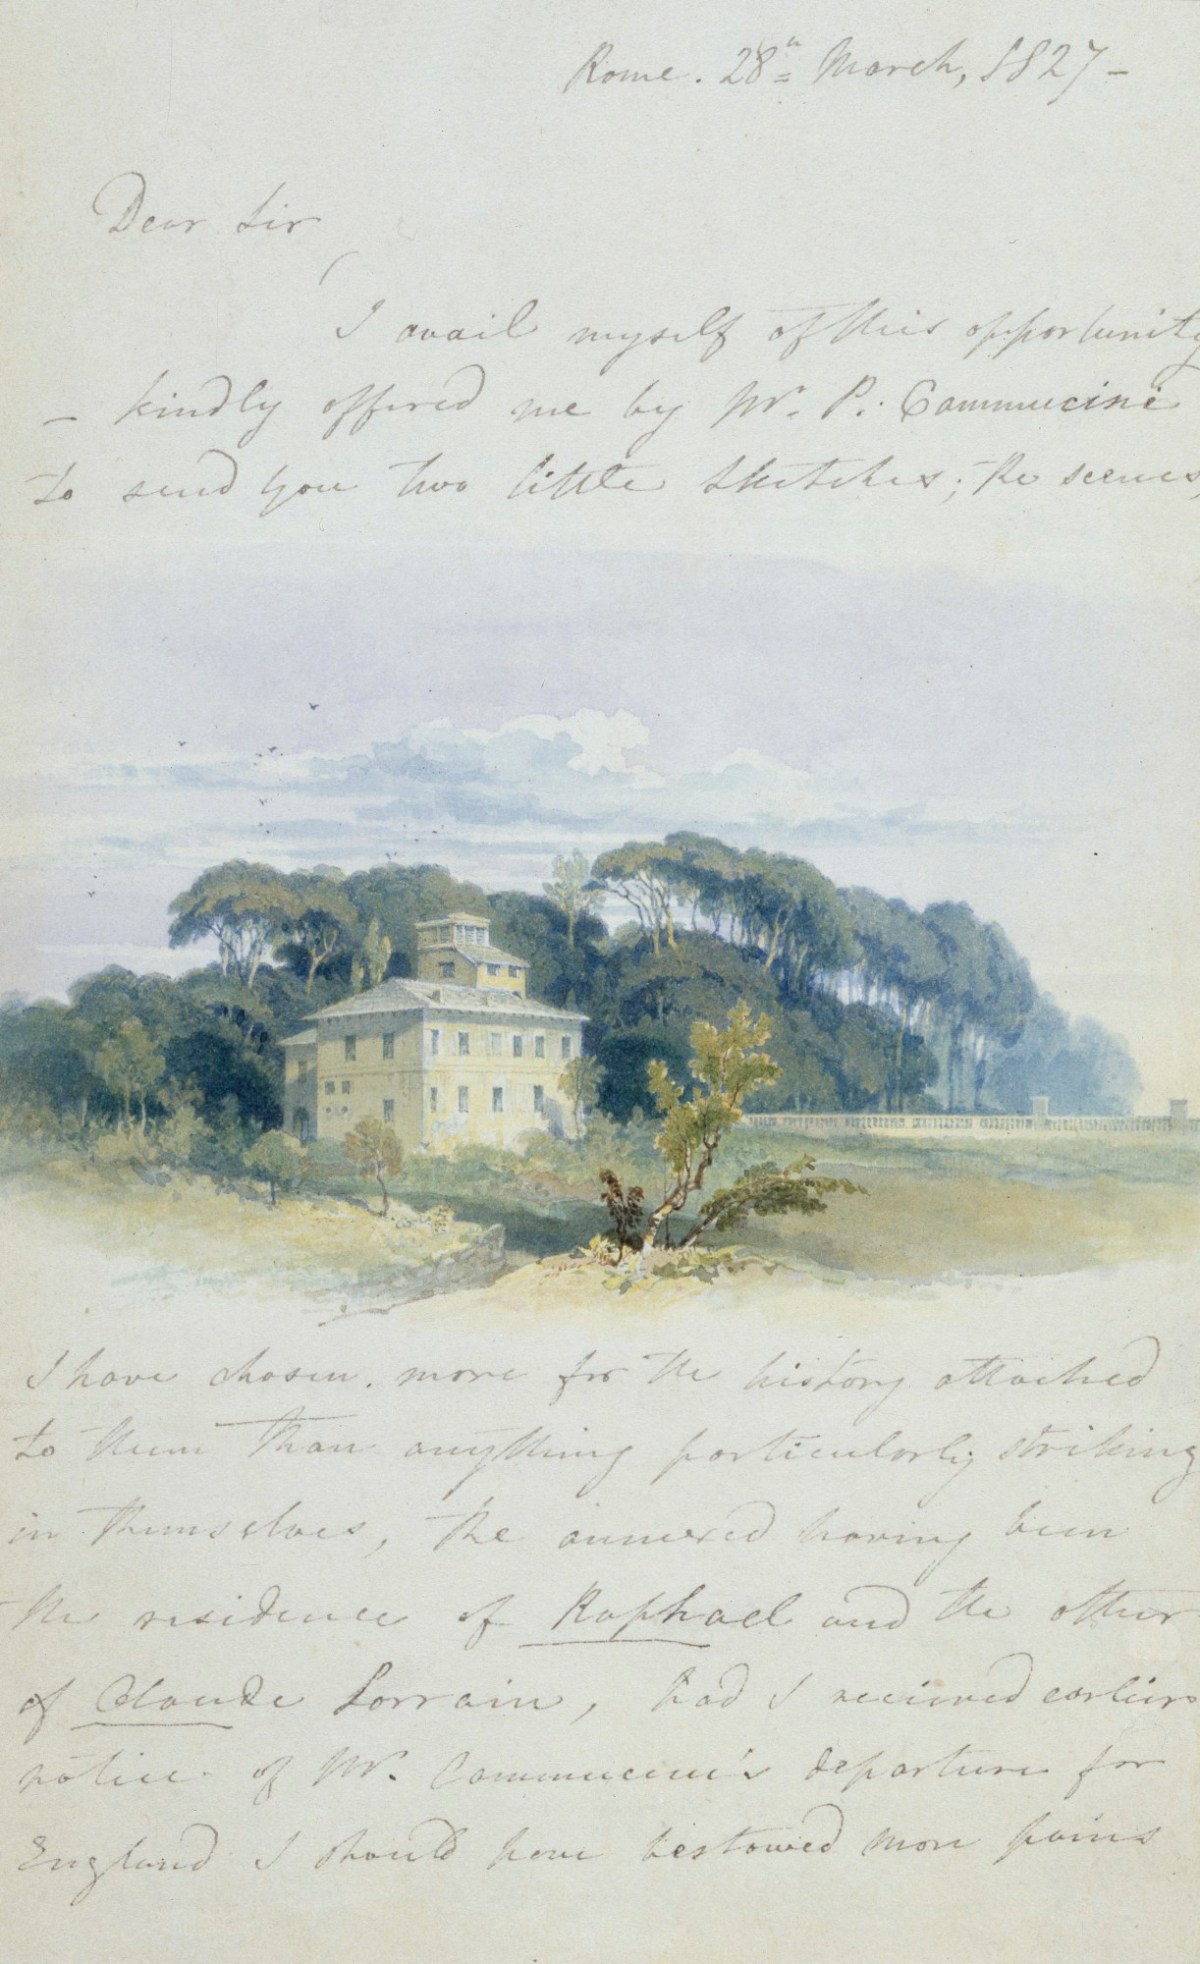 Rome. 28th March, 1827 –
Dear Sir
I avail myself of this opportunity
– kindly offered me by Mr. P. Cammucini
to send you two little sketches; the scenes,
I have chosen. more for the history attached
to them than anything particularly striking
in themselves, the annexed having been
the residence of Raphael and the other
of Claude Lorrain, had I recieved earlier
notice of Mr. Cammucini's departure for
England I should have bestowed more pains